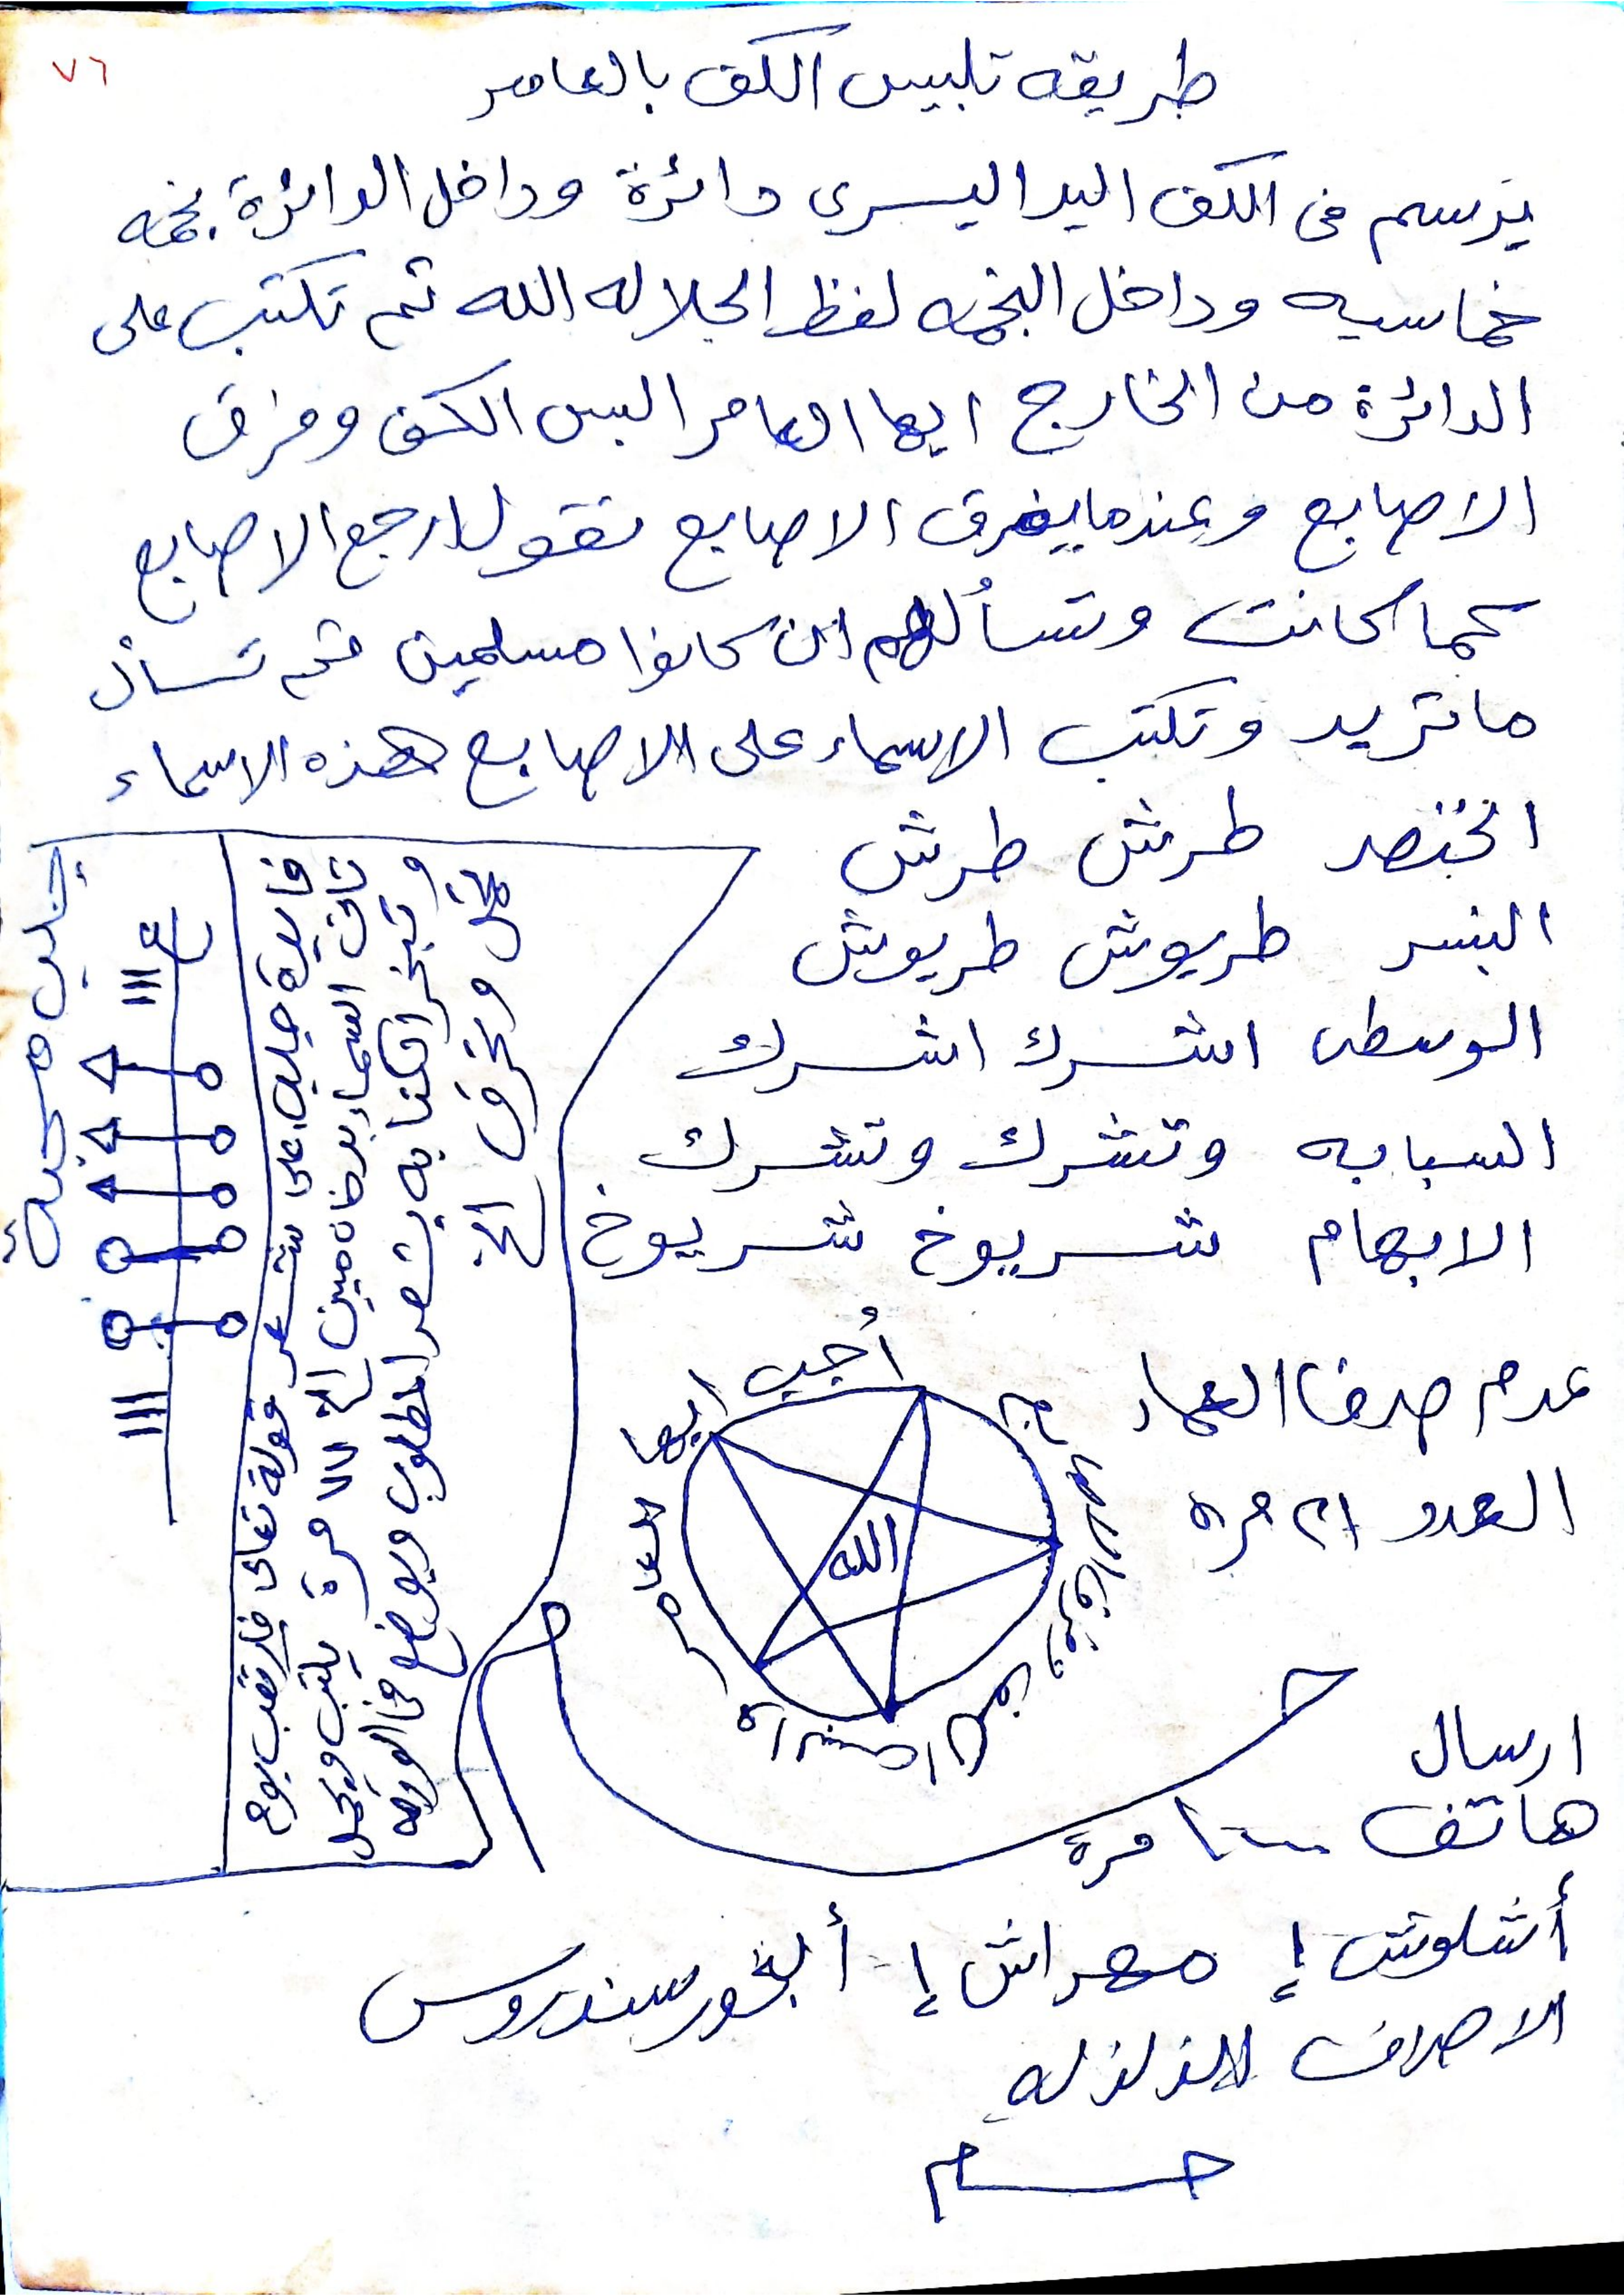 ٧٦
طريقه تلبيس الكف بالعامر
يرسم فى الكف اليد اليسرى دائرة وداخل الدائرة نجمه
خماسيه وداخل النجمه لفظ الجلاله الله ثم تكتب على
الدائرة من الخارج ايها العامر البس الكف وفرق
الاصابع وعندما يفرق الاصابع تقول ارجع الاصابع
كما كانت وتسألهم ان كانوا مسلمين ثم تسأل
ما تريد وتكتب الاسماء على الاصابع هذه الاسماء
الخنصر طرش طرش
البنسر طريوش طريوش
الوسطى اشرك اشرك
السبابه وتشرك وتشرك
الابهام شريوخ شريوخ
عدم صرف العمار
العدد ٢١ مره
أجب ايها العامر
الله
ارسال
هاتف مرة
أشلوش إ مهراش إ أ البخور سندروس
الاصراف الزلزله
فايدة جليله على شعر قولة تعالى فارتقب يوم
تأتى السماء بدخان مبين الخ ٧٧ مرة يكتب ويحمل
وتبخر الكتابه بشعر المطلوب ويوضع فى الورقه
ونحرق الخ